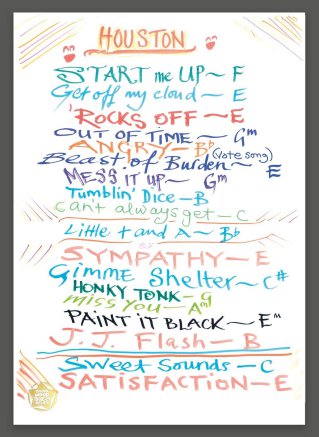 HOUSTON
START me UP ~ F
Get off my cloud ~ E
ROCKS OFF ~ E
OUT OF TIME ~ Gm
ANGRY - Bb
Beast of Burden ~ (Vote song) E
MESS IT UP ~ Gm
Tumblin' Dice - B
can't always get - C
Little t and A ~ Bb
SYMPATHY - E
GIMME Shelter ~ C#
HONKY TONK - G
MISS YOU - Am
PAINT IT BLACK ~ Em
J.J. Flash - B
Sweet Sounds - C
SATISFACTION - E